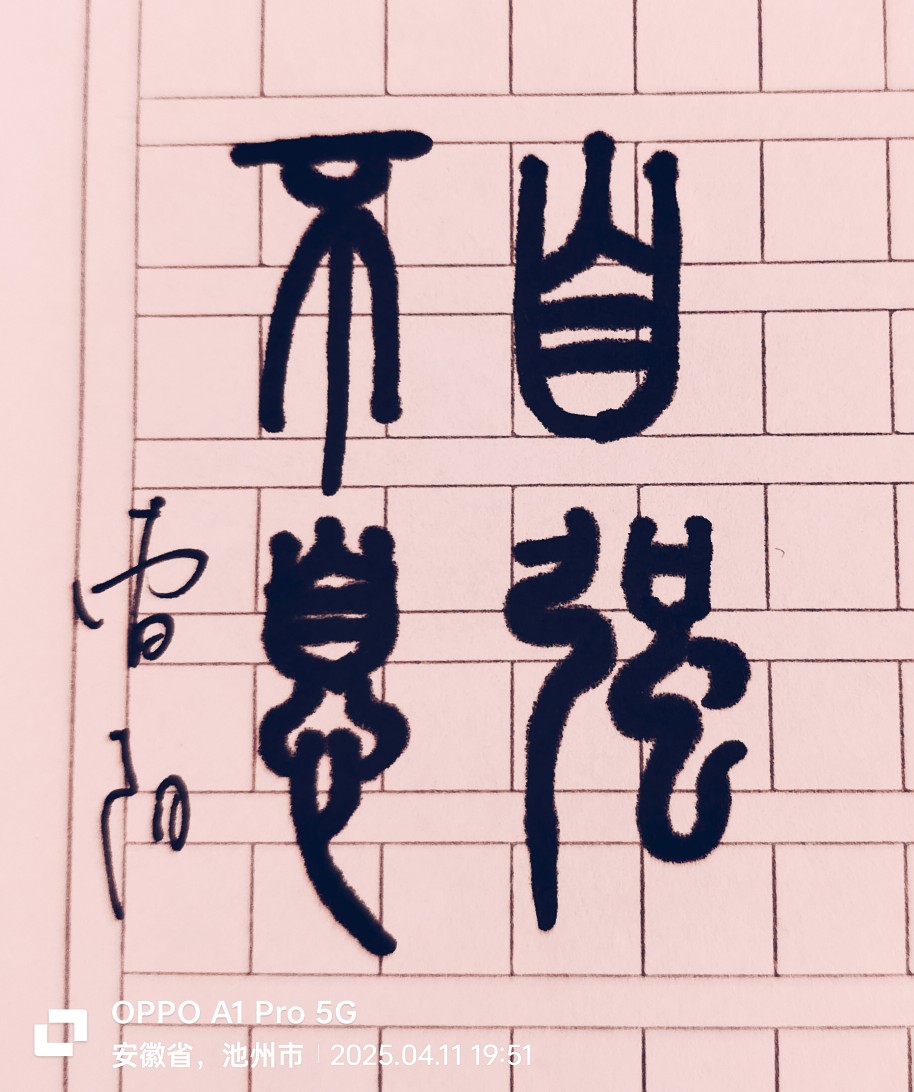 自强
不息
雷阳
OPPO A1 Pro 5G
安徽省，池州市 | 2025.04.11 19:51